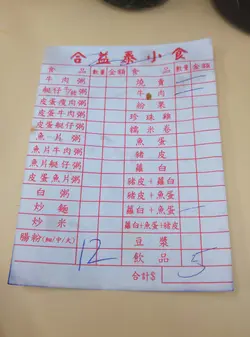 合益泰小食
食品 數量 金額 食品 數量 金額
牛肉粥 燒賣
艇仔粥 牛肉
皮蛋瘦肉粥 粉果
皮蛋牛肉粥 珍珠雞
皮蛋艇仔粥 糯米卷
魚片粥 魚蛋
魚片牛肉粥 豬皮
魚片艇仔粥 蘿白
皮蛋魚片粥 豬皮+蘿白
白粥 豬皮+魚蛋
炒麵 蘿白+魚蛋
炒米 蘿白+魚蛋+豬皮
腸粉(細/中/大) 12 豆漿
飲品 5
合計$